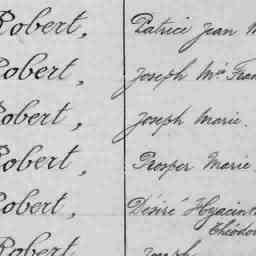 Robert, Patrice Jean M
Robert, Joseph Mie Fran
Robert, Joseph Marie.
Robert, Prosper Marie
Robert, Désiré Hyacinth
Théodor
Robert Joseph